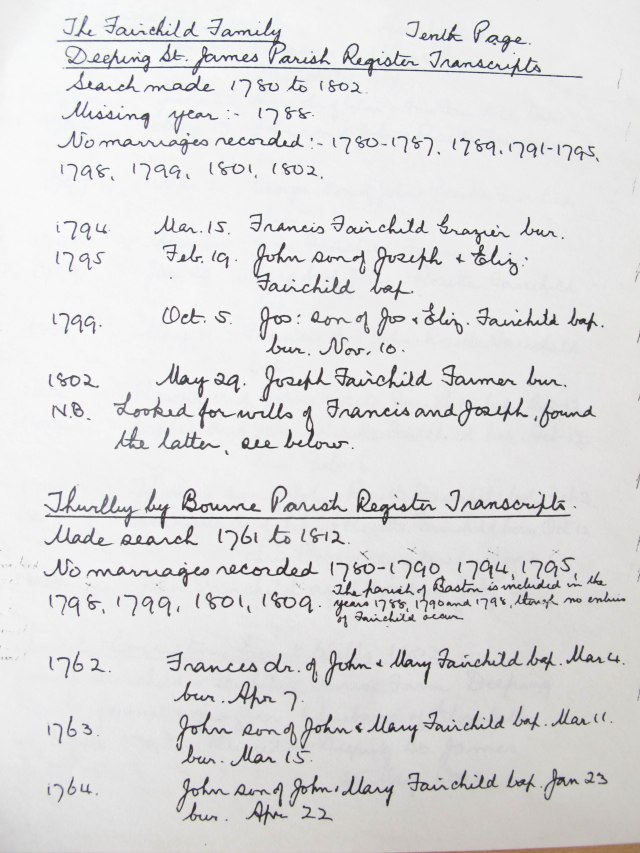 The Fairchild Family Tenth Page.
Deeping St. James Parish Register Transcripts
Search made 1780 to 1802
Missing year :- 1788.
No marriages recorded :- 1780-1787, 1789, 1791-1795,
1798, 1799, 1801, 1802.
1794 Mar. 15. Francis Fairchild Grazier bur.
1795 Feb. 19. John son of Joseph & Eliz:
Fairchild bap.
1799. Oct. 5. Jos: son of Jos & Eliz. Fairchild bap.
bur. Nov. 10.
1802 May 29. Joseph Fairchild Farmer bur.
N.B. Looked for wills of Francis and Joseph, found
the latter, see below.
Thurlby by Bourne Parish Register Transcripts.
Made search 1761 to 1812.
No marriages recorded 1780-1790 1794, 1795,
1798, 1799, 1801, 1809. The parish of Baston is included in the
years 1788, 1790 and 1798, though no entries
of Fairchild occur
1762. Frances dr. of John & Mary Fairchild bap. Mar 4.
bur. Apr 7.
1763. John son of John & Mary Fairchild bap. Mar 11.
bur. Mar 15.
1764. John son of John & Mary Fairchild bap. Jan 23
bur. Apr 22